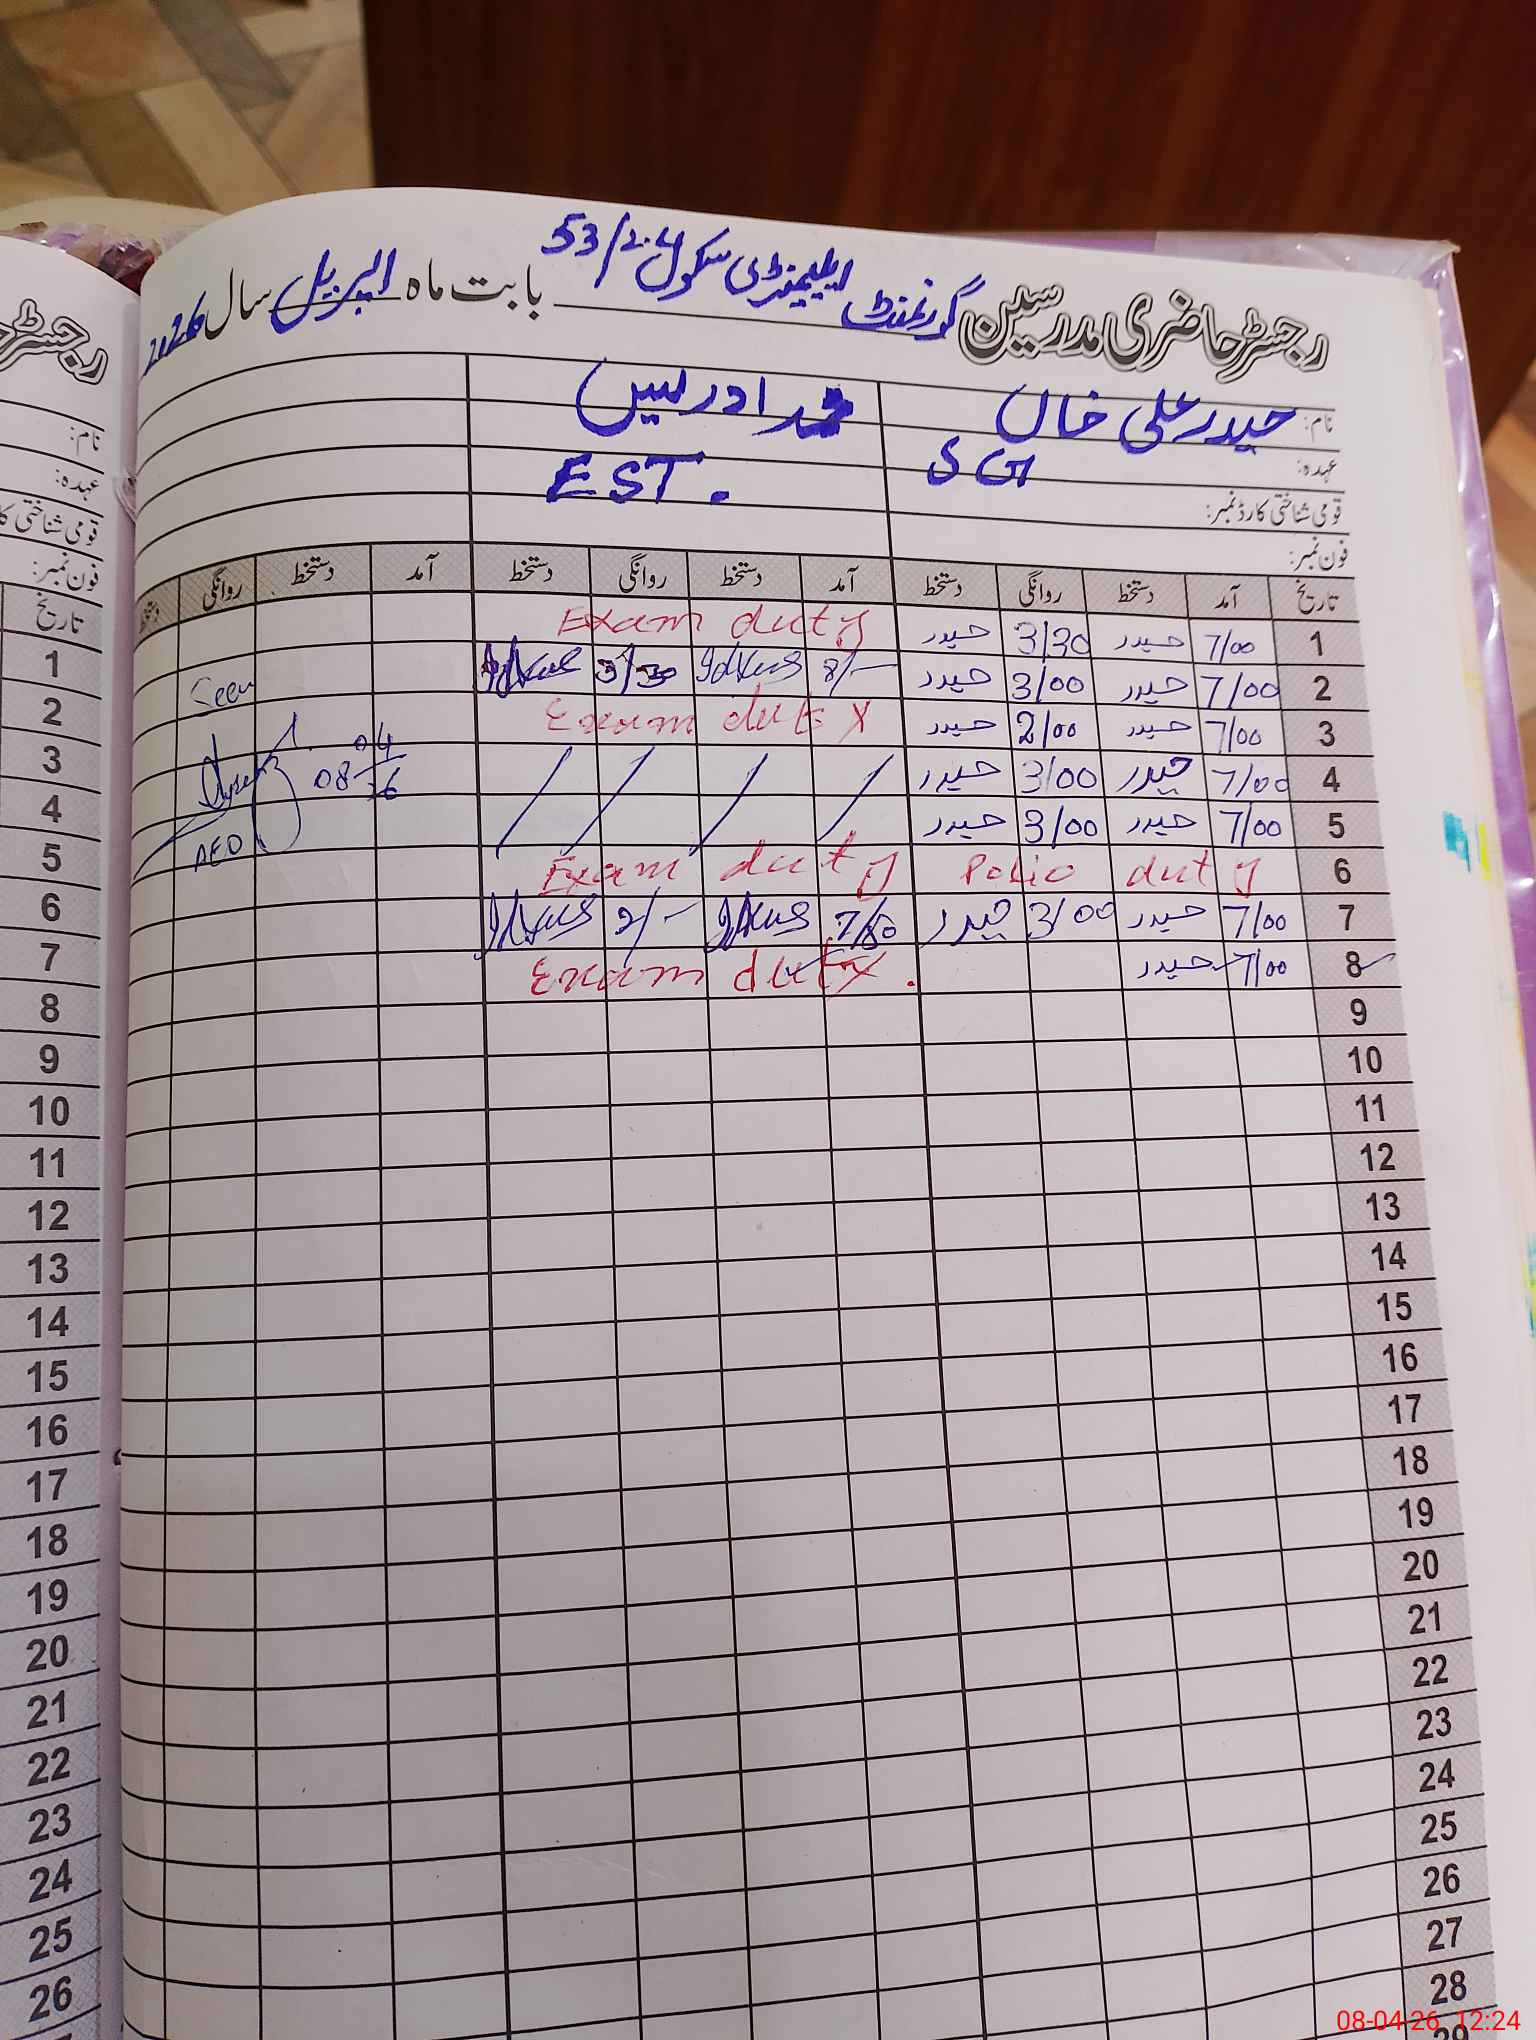 رجسٹر حاضری مدرسین گورنمنٹ ایلیمنٹری سکول 53/2.L بابت ماہ اپریل سال 2026
نام: حیدر علی خاں محمد ادریس
عہدہ: SG EST.
قومی شناختی کارڈ نمبر:
فون نمبر:
تاریخ آمد دستخط روانگی دستخط آمد دستخط روانگی دستخط آمد دستخط روانگی دستخط
1 7/00 حیدر 3/30 حیدر Exam duty
2 7/00 حیدر 3/00 حیدر 8/- Idrees 3/30 Idrees
Seen
3 7/00 حیدر 2/00 حیدر Exam duty
4 7/00 حیدر 3/00 حیدر
08-04-26
5 7/00 حیدر 3/00 حیدر
AEO
6 Polio duty Exam duty
7 7/00 حیدر 3/00 حیدر Idrees 2/- Idrees
8 7/00 حیدر Exam duty.
9
10
11
12
13
14
15
16
17
18
19
20
21
22
23
24
25
26
27
28
29
رجسٹر
نام:
عہدہ:
قومی شناختی
فون نمبر:
تاریخ
1
2
3
4
5
6
7
8
9
10
11
12
13
14
15
16
17
18
19
20
21
22
23
24
25
26
08-04-26 12:24